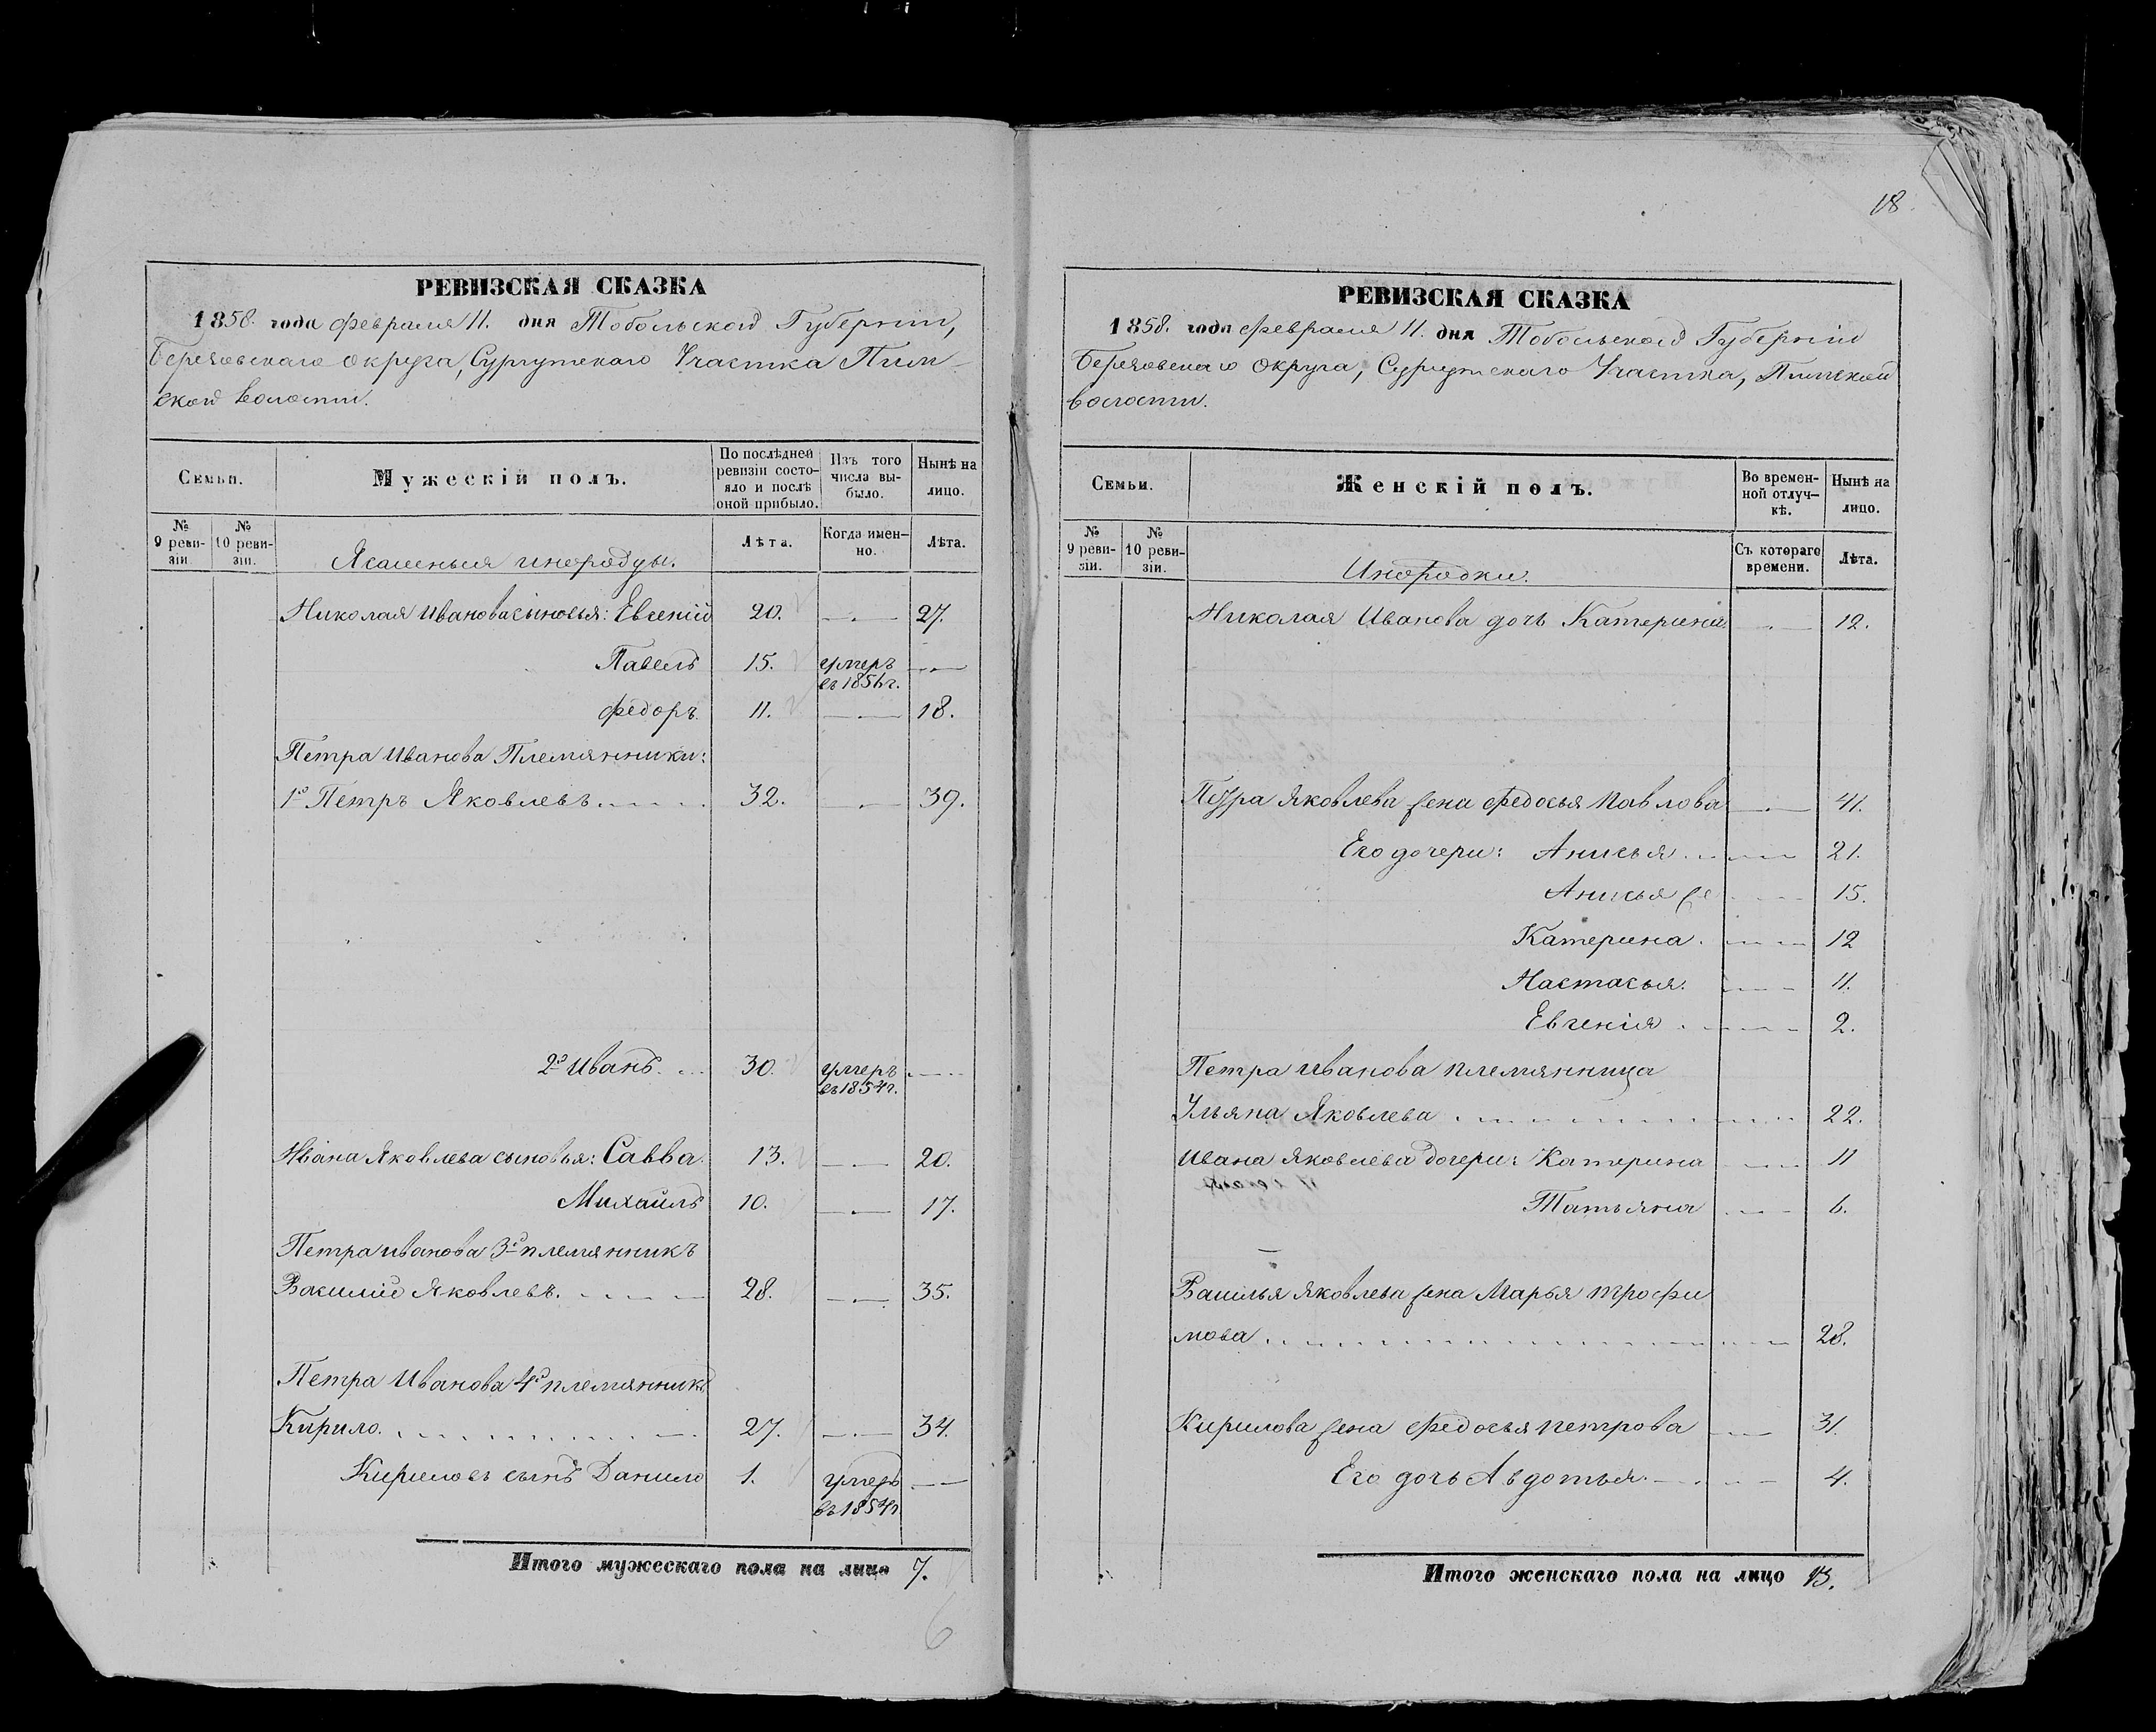 РЕВИЗСКАЯ СКАЗКА
1858. года февраля 11. дня Тобольской Губерніи,
Березовскаго округа, Сургутскаго Участка Пим-
ской волости.
Семьи.
Мужескій полъ.
По послѣдней ревизіи состояло и послѣ оной прибыло.
Изъ того числа выбыло.
Нынѣ на лицо.
№ 9 ревизіи.
№ 10 ревизіи.
Ясашныя инородцы.
Лѣта.
Когда именно.
Лѣта.
Николая Иванова сыновья: Евгеній 20. 27.
Павелъ 15. умеръ
въ 1856 г.
Федоръ. 11. 18.
Петра Иванова Племянники:
1й Петръ Яковлевъ 32. 39.
2й Иванъ. 30. умеръ
въ 1854 г.
Ивана Яковлева сыновья: Савва. 13. 20.
Михаилъ 10. 17.
Петра Иванова 3й племянникъ
Василий Яковлевъ. 28. 35.
Петра Иванова 4й племянникъ
Кирило. 27. 34.
Кириловъ сынъ Данило 1. умеръ
въ 1854 г.
Итого мужескаго пола на лицо 7.
6
18.
РЕВИЗСКАЯ СКАЗКА
1858. года февраля 11. дня Тобольской Губерніи
Березовскаго округа, Сургутскаго Участка, Пимской
волости.
Семьи.
Женскій полъ.
Во временной отлучкѣ.
Нынѣ на лицо.
№ 9 ревизіи.
№ 10 ревизіи.
Инородки.
Съ котораго времени.
Лѣта.
Николая Иванова дочь Катерина 12.
Петра Яковлева жена Федосья Павлова 41.
Его дочери: Анисья 21.
Анисья же 15.
Катерина. 12
Настасья. 11.
Евгенія 2.
Петра Иванова племянница
Ульяна Яковлева 22.
Ивана Яковлева дочери: Катерина 11
Татьяна 6.
Василья Яковлева жена Марья Трофи
мова 28.
Кирилова жена Федосья Петрова 31.
Его дочь Авдотья. 4.
Итого женскаго пола на лицо 13.